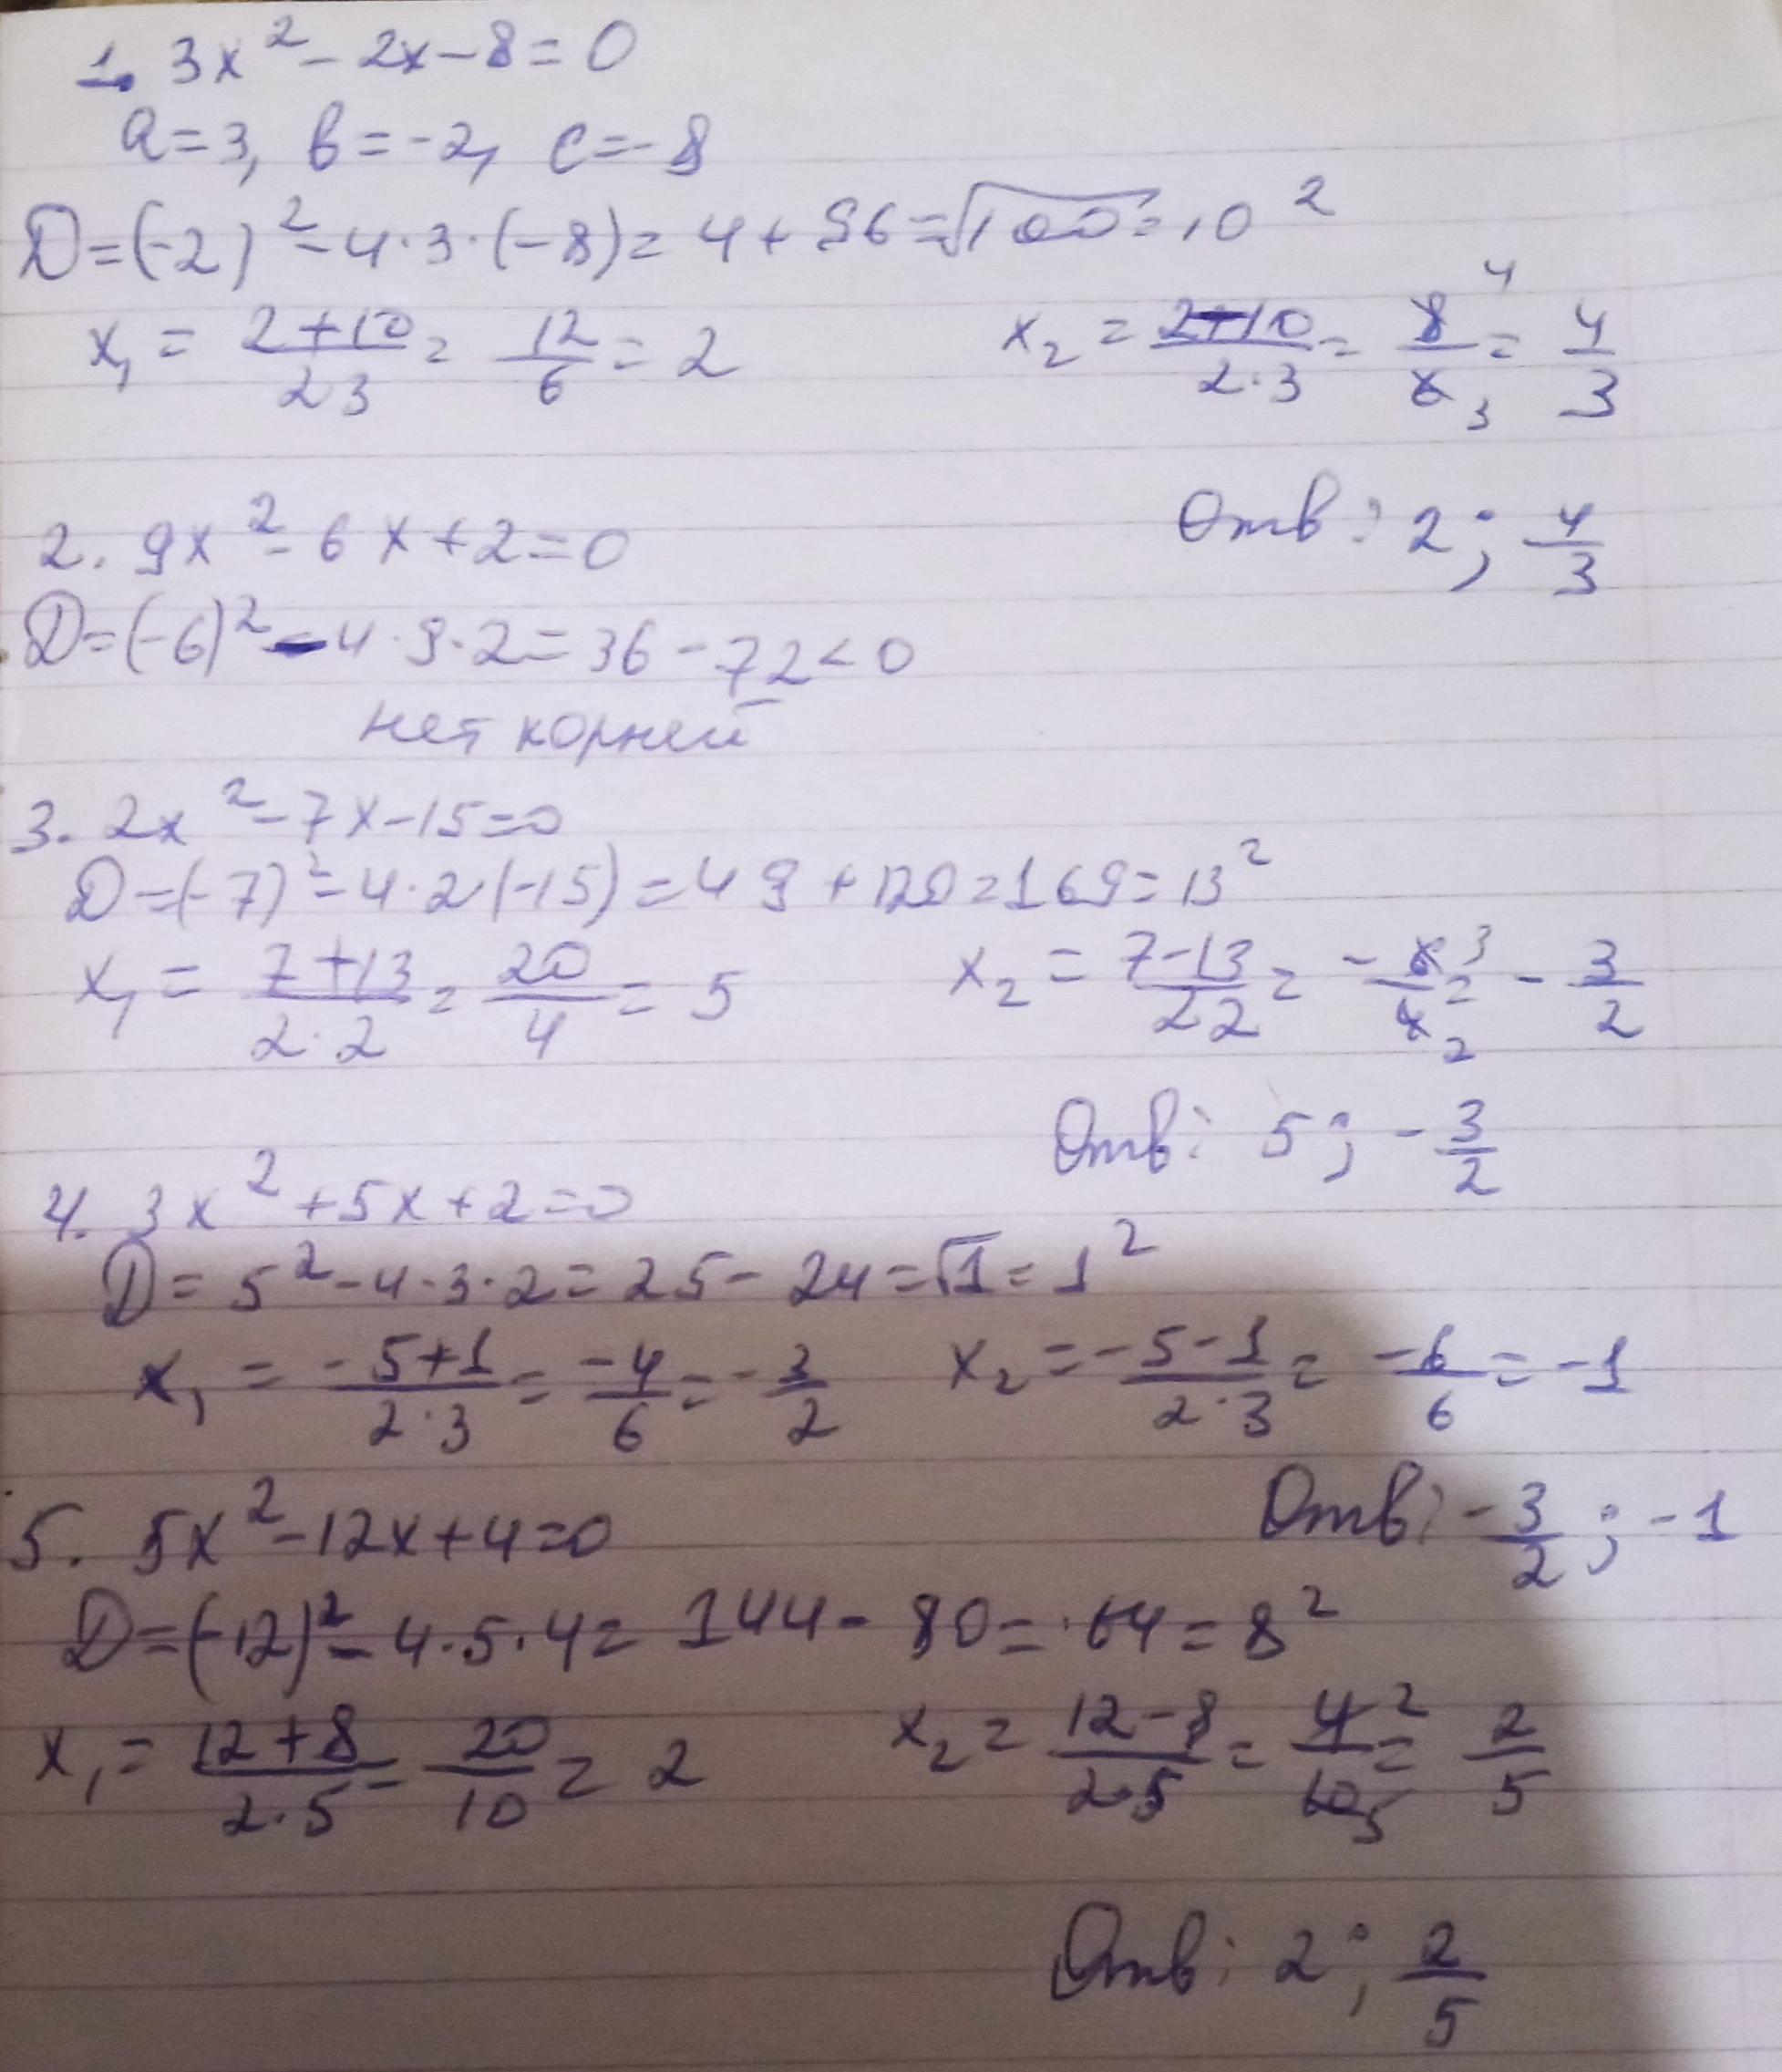 1. 3x² - 2x - 8 = 0
a = 3, b = -2, c = -8
D = (-2)² - 4·3·(-8) = 4 + 96 = √100 = 10²
x₁ = (2+10)/(2 3) = 12/6 = 2    x₂ = (2-10)/(2·3) = 8⁴/6₃ = 4/3
Отв: 2; 4/3
2. 9x² - 6x + 2 = 0
D = (-6)² - 4·9·2 = 36 - 72 < 0
нет корней
3. 2x² - 7x - 15 = 0
D = (-7)² - 4·2(-15) = 49 + 120 = 169 = 13²
x₁ = (7+13)/(2·2) = 20/4 = 5    x₂ = (7-13)/(2 2) = -6³/4₂ = -3/2
Отв: 5; -3/2
4. 3x² + 5x + 2 = 0
D = 5² - 4·3·2 = 25 - 24 = √1 = 1²
x₁ = (-5+1)/(2·3) = -4/6 = -3/2    x₂ = (-5-1)/(2·3) = -6/6 = -1
Отв: -3/2; -1
5. 5x² - 12x + 4 = 0
D = (-12)² - 4·5·4 = 144 - 80 = 64 = 8²
x₁ = (12+8)/(2·5) = 20/10 = 2    x₂ = (12-8)/(2·5) = 4²/10₅ = 2/5
Отв: 2; 2/5